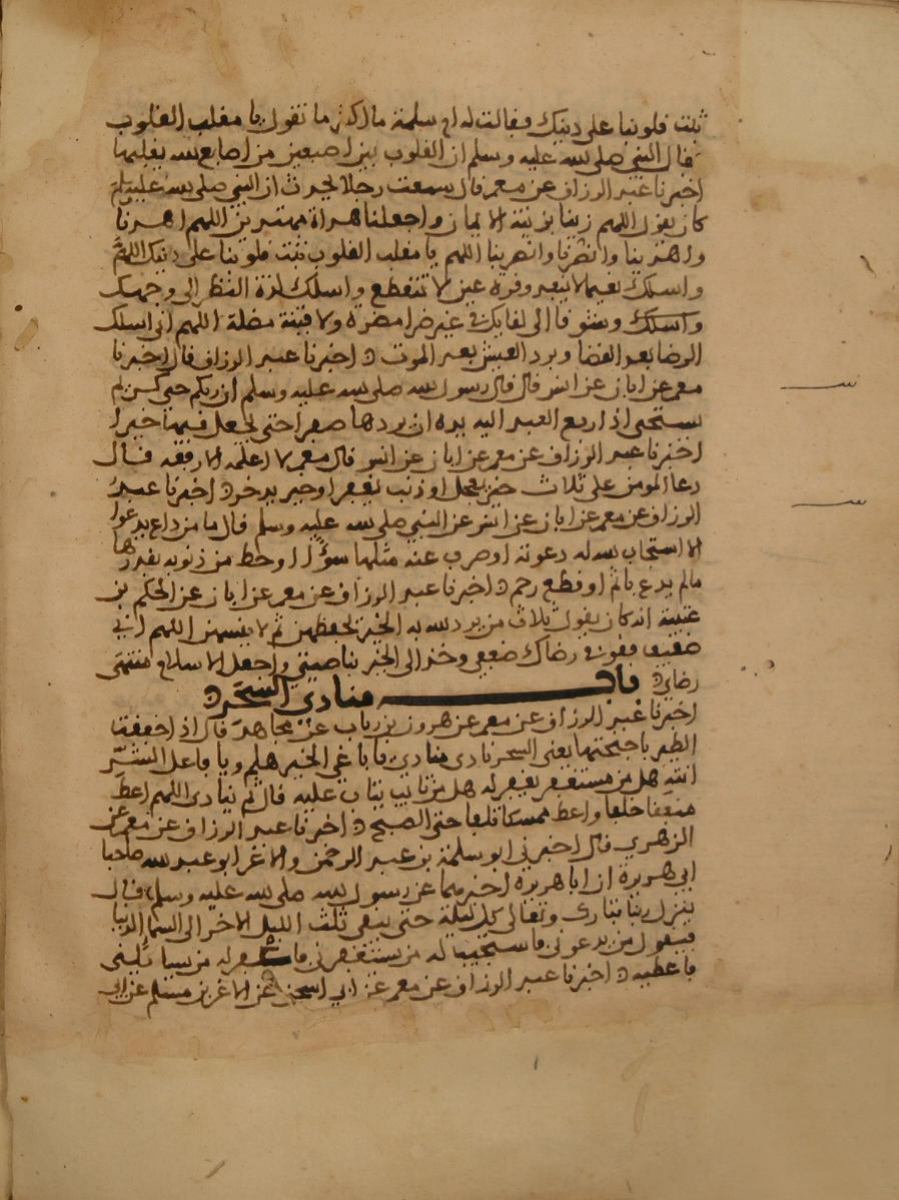 ثبت قلوبنا على دينك فقالت له ام سلمة مالك تكثر ما تقول يا مقلب القلوب
قال النبي صلى الله عليه وسلم ان القلوب بين اصبعين من اصابع الله يقلبها
اخبرنا عبد الرزاق عن معمر قال سمعت رجلا يحدث ان النبي صلى الله عليه وسلم
كان يقول اللهم زينا بزينة الايمان واجعلنا هداة مهتدين اللهم اهدنا
واهد بنا وانصرنا وانصر بنا اللهم يا مقلب القلوب ثبت قلوبنا على دينك اللهم
واسلك نعيما لا يبيد وقرة عين لا تنقطع واسلك لذة النظر الى وجهك
واسلك وشوقا الى لقايك في غير ضرا مضرة ولا فتنة مضلة اللهم اني اسلك
الرضا بعد القضا وبرد العيش بعد الموت اخبرنا عبد الرزاق قال اخبرنا
معمر عن ابان عن انس قال قال رسول الله صلى الله عليه وسلم ان ربكم حيي كريم
يستحيي اذا رفع العبد اليه يده ان يردها صفرا حتى يجعل فيها خيرا
اخبرنا عبد الرزاق عن معمر عن ابان عن انس قال معمر لا اعلمه الا رفعه قال
دعا المومن على ثلاث خير يعجل او ذنب يغفر او خير يدخر اخبرنا عبد
الرزاق عن معمر عن ابان عن انس عن النبي صلى الله عليه وسلم قال ما من داع يدعوا
الا استجاب الله له دعوته او صرف عنه مثلها سوا او حط من ذنوبه بقدرها
مالم يدع باثم او قطع رحم اخبرنا عبد الرزاق عن معمر عن ابان عن الحكم بن
عتيبة انه كان يقول ثلاث من يرد الله به الخير يحفظهن ثم لا ينسهن اللهم اني
ضعيف فقو في رضاك ضعفي وخذ الى الخير بناصيتي واجعل الاسلام منتهى
رضاي باب منادي السحر
اخبرنا عبد الرزاق عن معمر عن هرون بن رياب عن مجاهد قال اذا خفقت
الطير باجنحتها يعني السحر نادى منادي يا باغي الخير هلم ويا فاعل الشر
انته هل من مستغفر يغفر له هل من تايب يتاب عليه قال ثم ينادى اللهم اعط
منفقا خلفا واعط ممسكا تلفا حتى الصبح اخبرنا عبد الرزاق عن معمر عن
الزهري قال اخبرني ابو سلمة بن عبد الرحمن والاغر ابو عبد الله صاحبا
ابي هريرة ان ابا هريرة اخبرهما عن رسول الله صلى الله عليه وسلم قال
ينزل ربنا تبارك وتعالى كل ليلة حتى يبقى ثلث الليل الاخر الى السما الدنيا
فيقول من يدعوني فاستجيب له من يستغفرني فاغفر له من يسالني
فاعطيه اخبرنا عبد الرزاق عن معمر عن ابي اسحق عن الاغر بن مسلم عن ابي